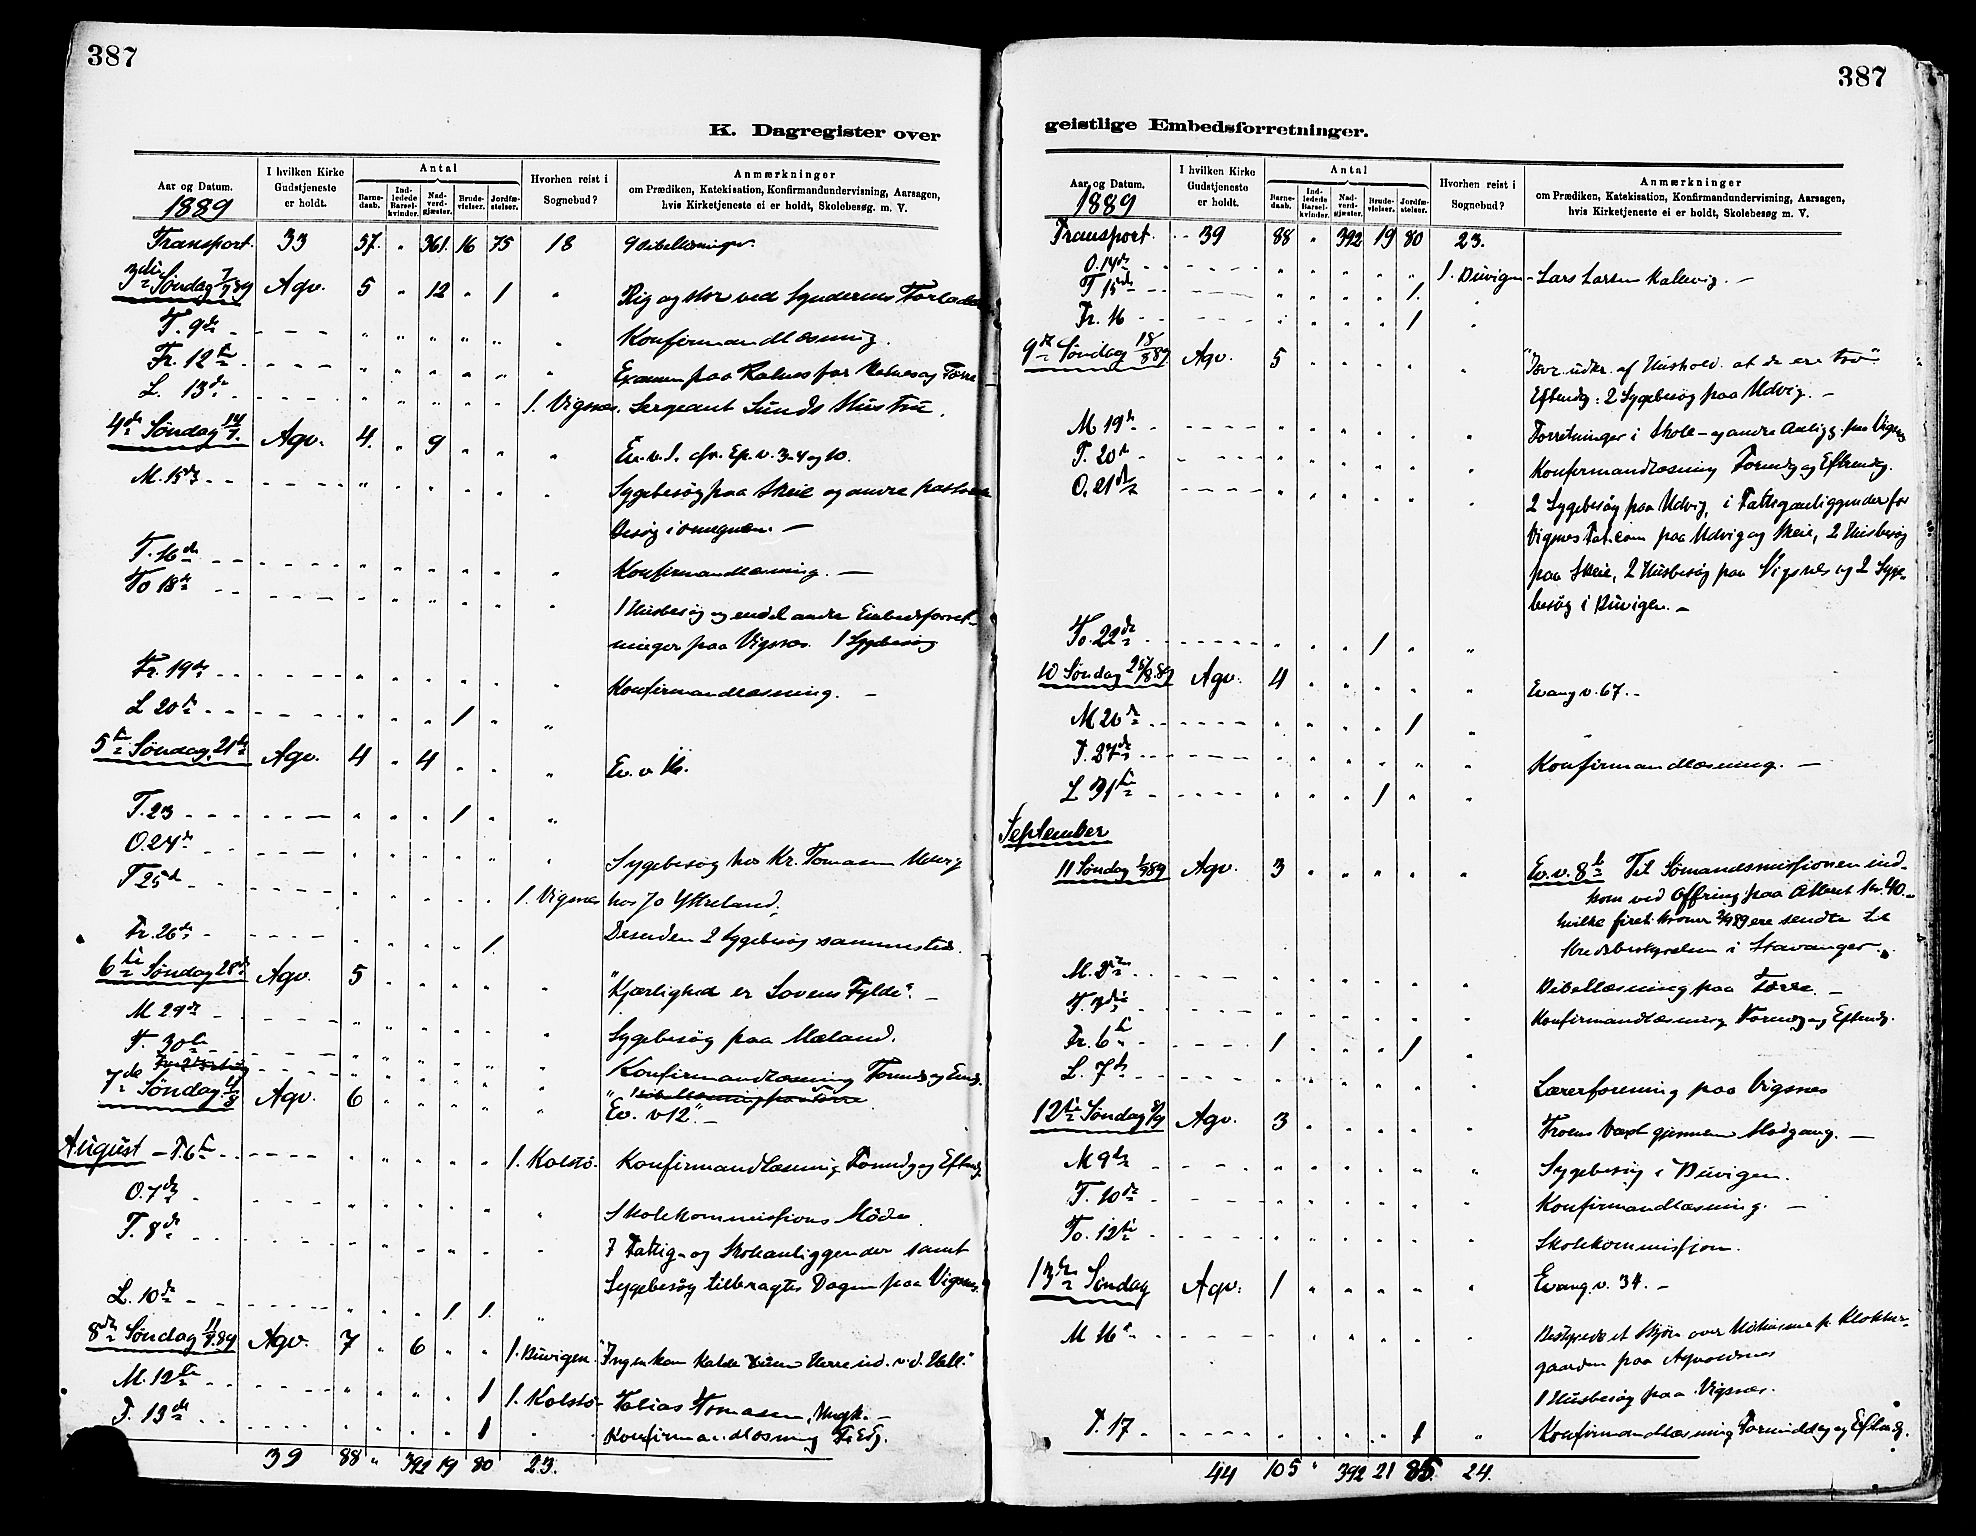 387
K. Dagregister over
Aar og Datum.
1889
I hvilken Kirke
Gudstjeneste
er holdt.
Antal
Barne-
daab.
Ind-
ledede
Barsel-
kvinder.
Nad-
verd-
gjæster.
Brude-
vielser.
Jordfæ-
stelser.
Hvorhen reist i
Sognebud?
Anmærkninger
om Prædiken, Katekisation, Konfirmandundervisning, Aarsagen,
hvis Kirketjeneste ei er holdt, Skolebesøg. m. V.
Transport. 33 57. " 361. 16 75 18 9 Bibellæsninger.
3die Søndag 7/7 89 Agv. 5 " 12 " 1 " Rig og stor ved Syndernes Forladelse
T. 9de " " " " " " Konfirmandlæsning.
Fr. 12te " " " " " " Examen paa
L. 13de " " " " " 1. Vigsnes. Sergeant Sunds Hustru.
4de Søndag 14/7. Agv. 4. " 9 " " " Ev. v. 1. cfr. Ep. v. 3-4 og 10.
M. 15de " " " " " " Sygebesøg paa Skeie og andre
Besøg i omegnen. —
T. 16de " " " " " " Konfirmandlæsning. —
To 18de " " " " " " 1 Husbesøg og endel andre Embedsforret-
ninger paa Vigsnes. 1 Sygebesøg
Fr. 19de " " " " " " Konfirmandlæsning. —
L 20de " " " 1 " "
5te Søndag, 21de Agv. 4 " 4 " " " Ev. v. 16.
T. 23 " " " 1 " "
O. 24de " " " " " " Sygebesøg hos Kr. Tomasen
T 25de " " " " " 1. Vigsnes hos Jo
Fr. 26de " " " " 1. Desuden 2 Sygebesøg sammesteds.
6te Søndag 28de Agv. 5 " " " " " "Kjærlighed er Lovens Fylde". —
M 29de " " " " " " Sygebesøg paa Mæland.
T. 30te " " " " " " Konfirmandlæsning Formdg og
7de Søndag 4/8 Agv. 6 " " " " " Ev. v 12". —
August — T. 6te " " " " " 1. Kolstø. Konfirmandlæsning Formdg og Eftmdg.
O. 7de " " " " " " Skolekommissions Møde
T. 8de " " " " " " I Fattig- og Skoleanliggender samt
Sygebesøg tilbragtes Dagen paa Vigsnes.
L. 10de " " " 1 1. "
8de Søndag 11/8.89 Agv. 7 " 6 " " 1. Duvigen. "Ingen kan kalde Herre ud. v. d. Hell."
M. 12te " " " " 1 1. Kolstø- Tobias Tomasen, Ungk. —
T. 13de " " " " 1 " Konfirmandlæsning
39 88 " 392 19 80 23.
387
geistlige Embedsforretninger.
Aar og Datum.
1889
I hvilken Kirke
Gudstjeneste
er holdt.
Antal
Barne-
daab.
Ind-
ledede
Barsel-
kvinder.
Nad-
verd-
gjæster.
Brude-
vielser.
Jordfæ-
stelser.
Hvorhen reist i
Sognebud?
Anmærkninger
om Prædiken, Katekisation, Konfirmandundervisning, Aarsagen,
hvis Kirketjeneste ei er holdt, Skolebesøg m. V.
Transport. 39 88 " 392 19 80 23.
O. 14de " " " " " 1. Duvigen - Lars Larsen Kallevig. —
T 15de " " " " 1. "
Fr. 16 " " " " 1 "
9de Søndag 18/8 89 Agv. 5 " " " " " af Hushold. at de ere tro"
Eftmdg: 2 Sygebesøg paa Udvig. —
M 19de " " " " " " Forretninger i Skole- og andre Anligg. paa Vigsnes
T. 20de " " " " " " Konfirmandlæsning Formdg og Eftmdg.
O. 21de " " " " " " 2 Sygebesøg paa Udvig, i Fattiganliggender for
Vigsnes Fat.com paa Udvig og Skeie, 2 Husbesøg
paa Skeie, 2 Husbesøg paa Vigsnes og 2 Syge-
besøg i Duvigen. —
To. 22de " " " 1 " "
10 Søndag 25/8.89 Agv. 4 " " " " " Evang v. 67. —
M 26de " " " " 1 "
T. 27de " " " " " " Konfirmandlæsning. —
L 31te " " " 1 " "
September
11 Søndag 1/9 89 Agv. 3 " " " " " Ev. v. 8te Til Sømandsmissionen ind-
kom ved Offring paa Alteret kr. 40.
hvilke firti Kroner 2/9 89 ere sendte til
Kredsbestyrelsen i Stavanger.
M. 2den " " " " " " Bibellæsning paa Tørre. —
T. 3die " " " " " " Konfirmandlæsning Formdg og Eftmdg.
Fr. 6te 1 " " " 1 "
L. 7de " " " " " " Lærerforening paa Vigsnes
12te Søndag 8/9 Agv. 3 " " " " " Troens Vext gjennem Modgang. —
M 9de " " " " " " Sygebesøg i Duvigen.
T. 10de " " " " " " Konfirmandlæsning. —
To. 12te " " " " " " Skolekommission.
13de Søndag Agv. 1 " " " " " Evang. v. 34. —
M 16de " " " " " " Bestyrede et Skjøn over Udhusene p. Klokker-
gaarden paa Agvoldsnes
1 Husbesøg paa Vigsnes.
T. 17 " " " " 1 " Konfirmandlæsning Formiddag og Eftmdg.
44 105 " 392 21 85. 24.